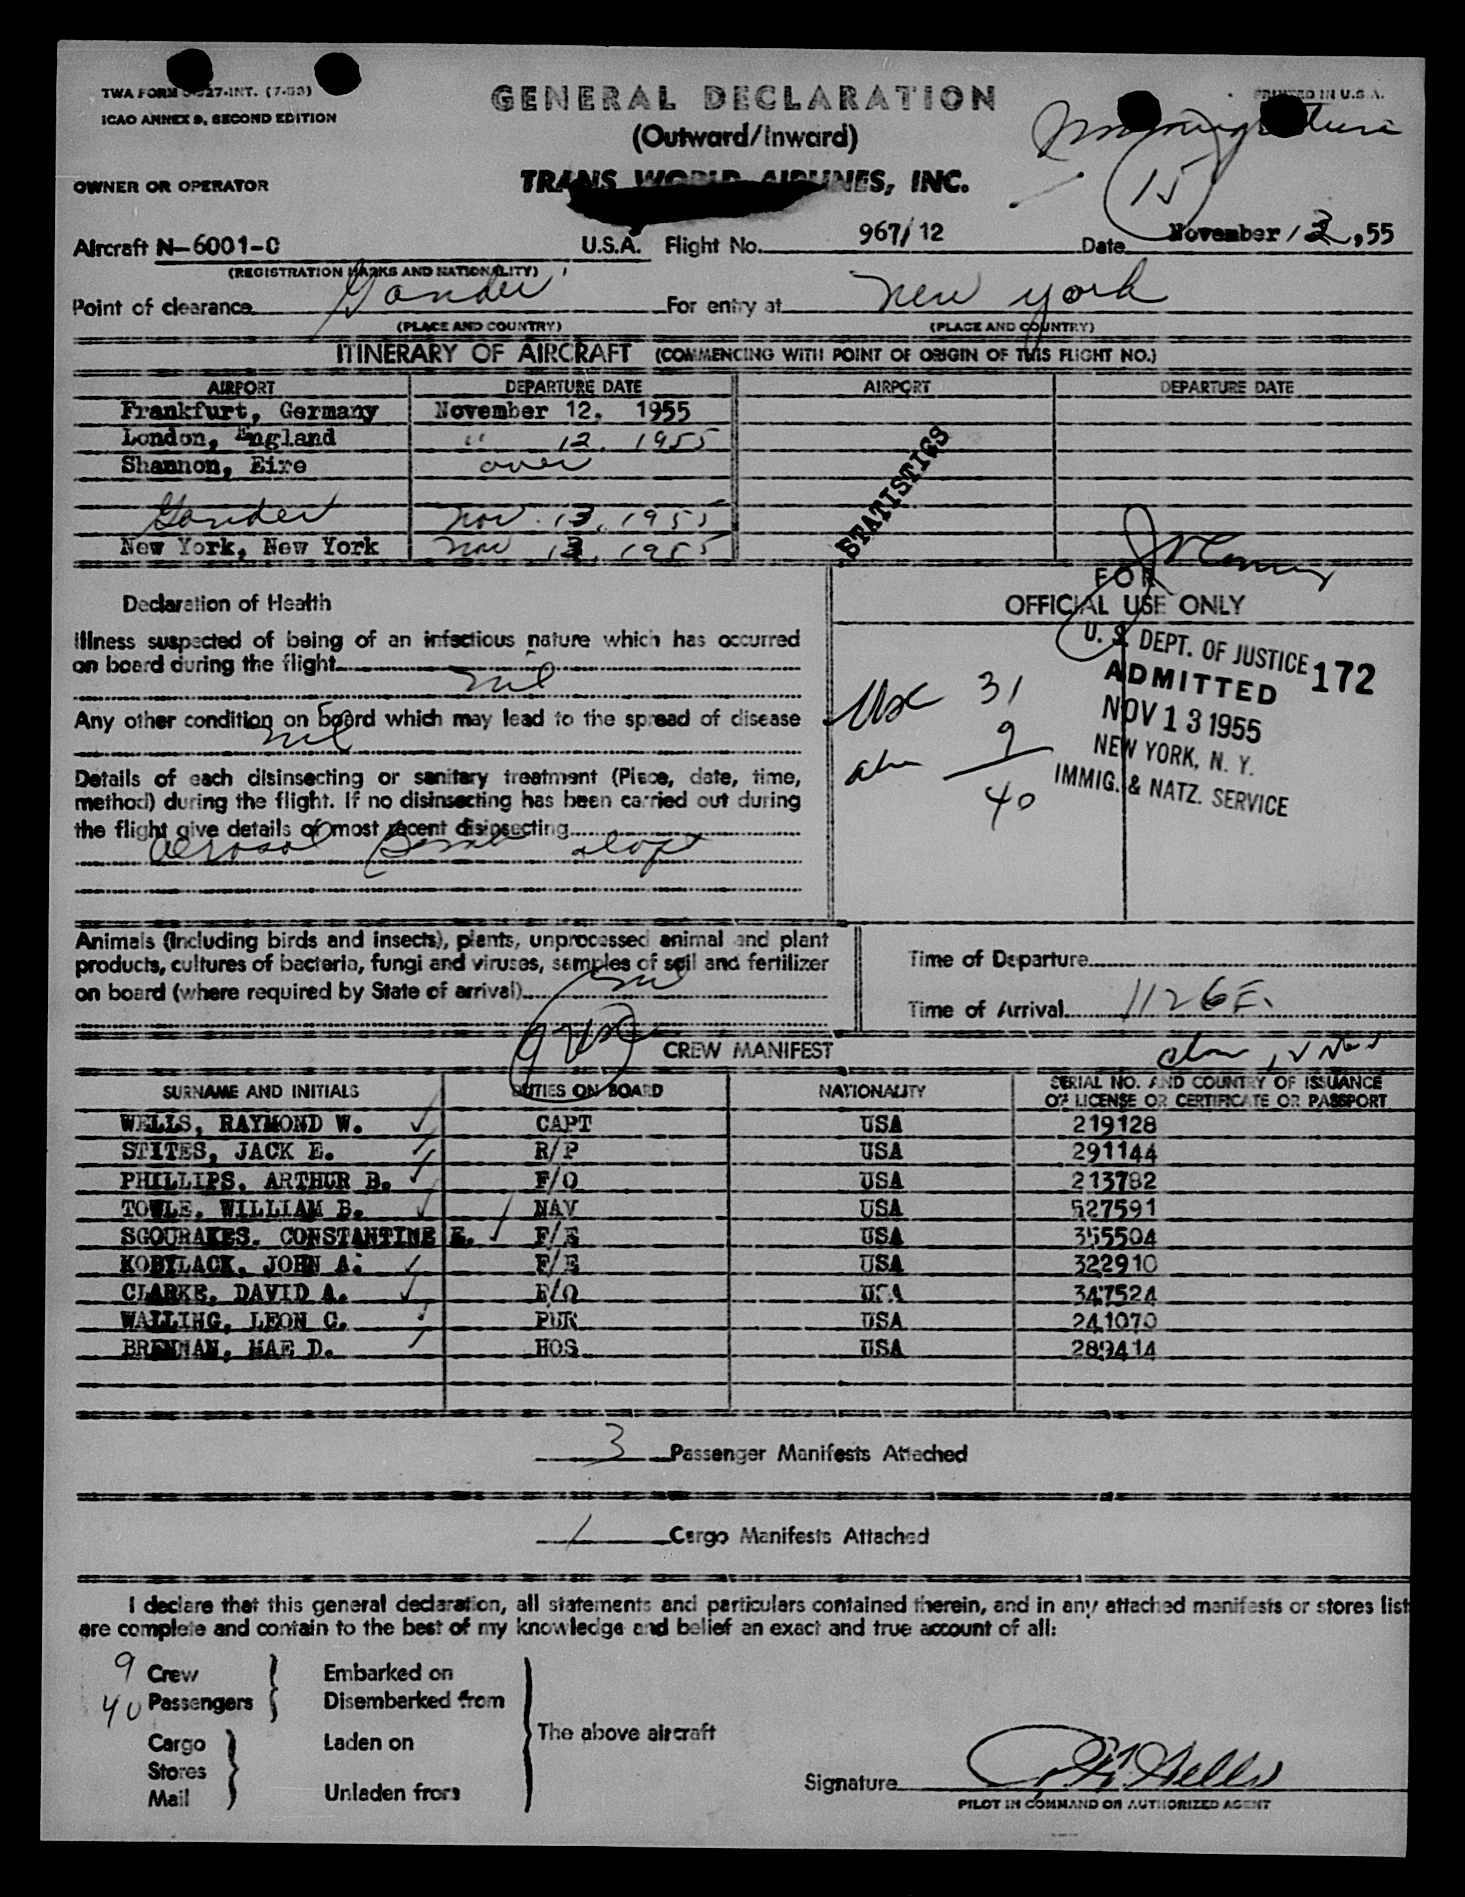 TWA FORM 3-327-INT. (7-53)
ICAO ANNEX 9, SECOND EDITION
GENERAL DECLARATION
(Outward/Inward)
PRINTED IN U.S.A.
OWNER OR OPERATOR
TRANS WORLD AIRLINES, INC.
15
Aircraft N-6001-C U.S.A. Flight No. 967/12 Date November 13, 55
(REGISTRATION MARKS AND NATIONALITY)
Point of clearance Gander For entry at New York
(PLACE AND COUNTRY) (PLACE AND COUNTRY)
ITINERARY OF AIRCRAFT (COMMENCING WITH POINT OF ORIGIN OF THIS FLIGHT NO.)
AIRPORT DEPARTURE DATE AIRPORT DEPARTURE DATE
Frankfurt, Germany November 12, 1955
London, England " 12, 1955
Shannon, Eire over
STATISTICS
Gander Nov. 13, 1955
New York, New York Nov 13, 1955
Declaration of Health
FOR
OFFICIAL USE ONLY
Illness suspected of being of an infectious nature which has occurred
on board during the flight
nil
Any other condition on board which may lead to the spread of disease
nil
Details of each disinsecting or sanitary treatment (Place, date, time,
method) during the flight. If no disinsecting has been carried out during
the flight give details of most recent disinsecting
Aerosol Bomb
U. S. DEPT. OF JUSTICE 172
ADMITTED
NOV 13 1955
NEW YORK, N. Y.
IMMIG. & NATZ. SERVICE
USC 31
aln 9
40
Animals (Including birds and insects), plants, unprocessed animal and plant
products, cultures of bacteria, fungi and viruses, samples of soil and fertilizer
on board (where required by State of arrival) nil
Time of Departure
Time of Arrival 1126 E.
9 USC
CREW MANIFEST
SURNAME AND INITIALS DUTIES ON BOARD NATIONALITY SERIAL NO. AND COUNTRY OF ISSUANCE
OF LICENSE OR CERTIFICATE OR PASSPORT
WELLS, RAYMOND W. CAPT USA 219128
STITES, JACK E. R/P USA 291144
PHILLIPS, ARTHUR B. F/O USA 213782
TOWLE, WILLIAM B. NAV USA 527591
SGOURAKES, CONSTANTINE E. F/E USA 355504
KOBYLACK, JOHN A. F/E USA 322910
CLARKE, DAVID A. F/O USA 347524
WALLING, LEON C. PUR USA 241070
BRENNAN, MAE D. HOS USA 289414
3 Passenger Manifests Attached
1 Cargo Manifests Attached
I declare that this general declaration, all statements and particulars contained therein, and in any attached manifests or stores list
are complete and contain to the best of my knowledge and belief an exact and true account of all:
9 Crew Embarked on
40 Passengers Disembarked from
The above aircraft
Cargo Laden on
Stores
Mail Unladen from
Signature R W Wells
PILOT IN COMMAND OR AUTHORIZED AGENT